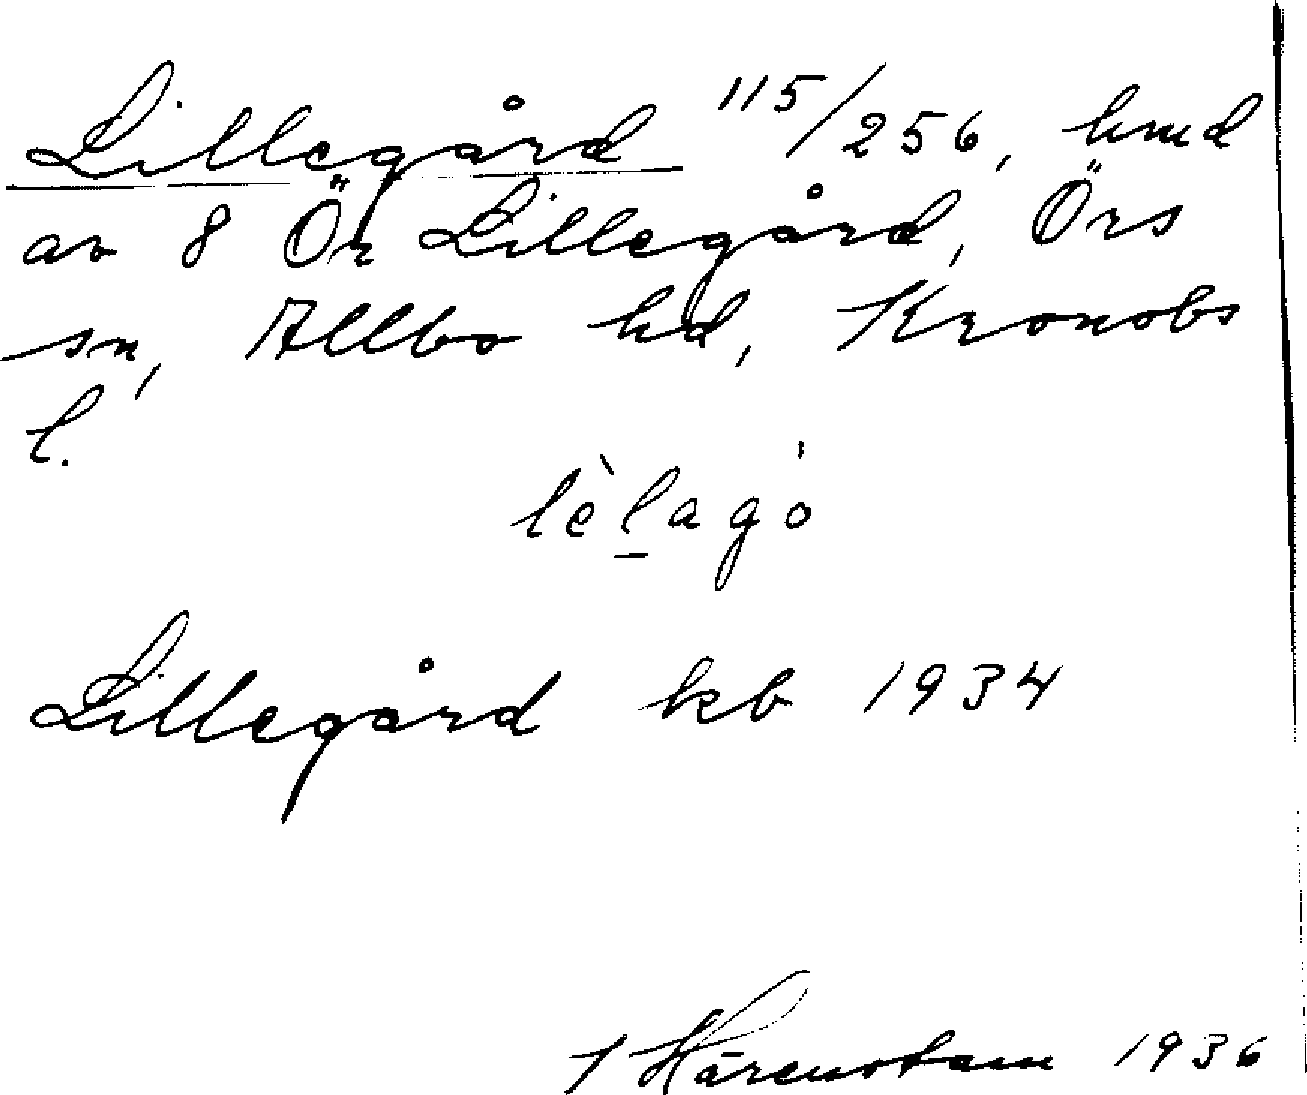 Lillegård 115/256, hmd
av 8 Ör Lillegård, Örs
sn, Allbo hd, Kronobs
l.
lèlagó
Lillegård kb 1934
Härenstam 1936